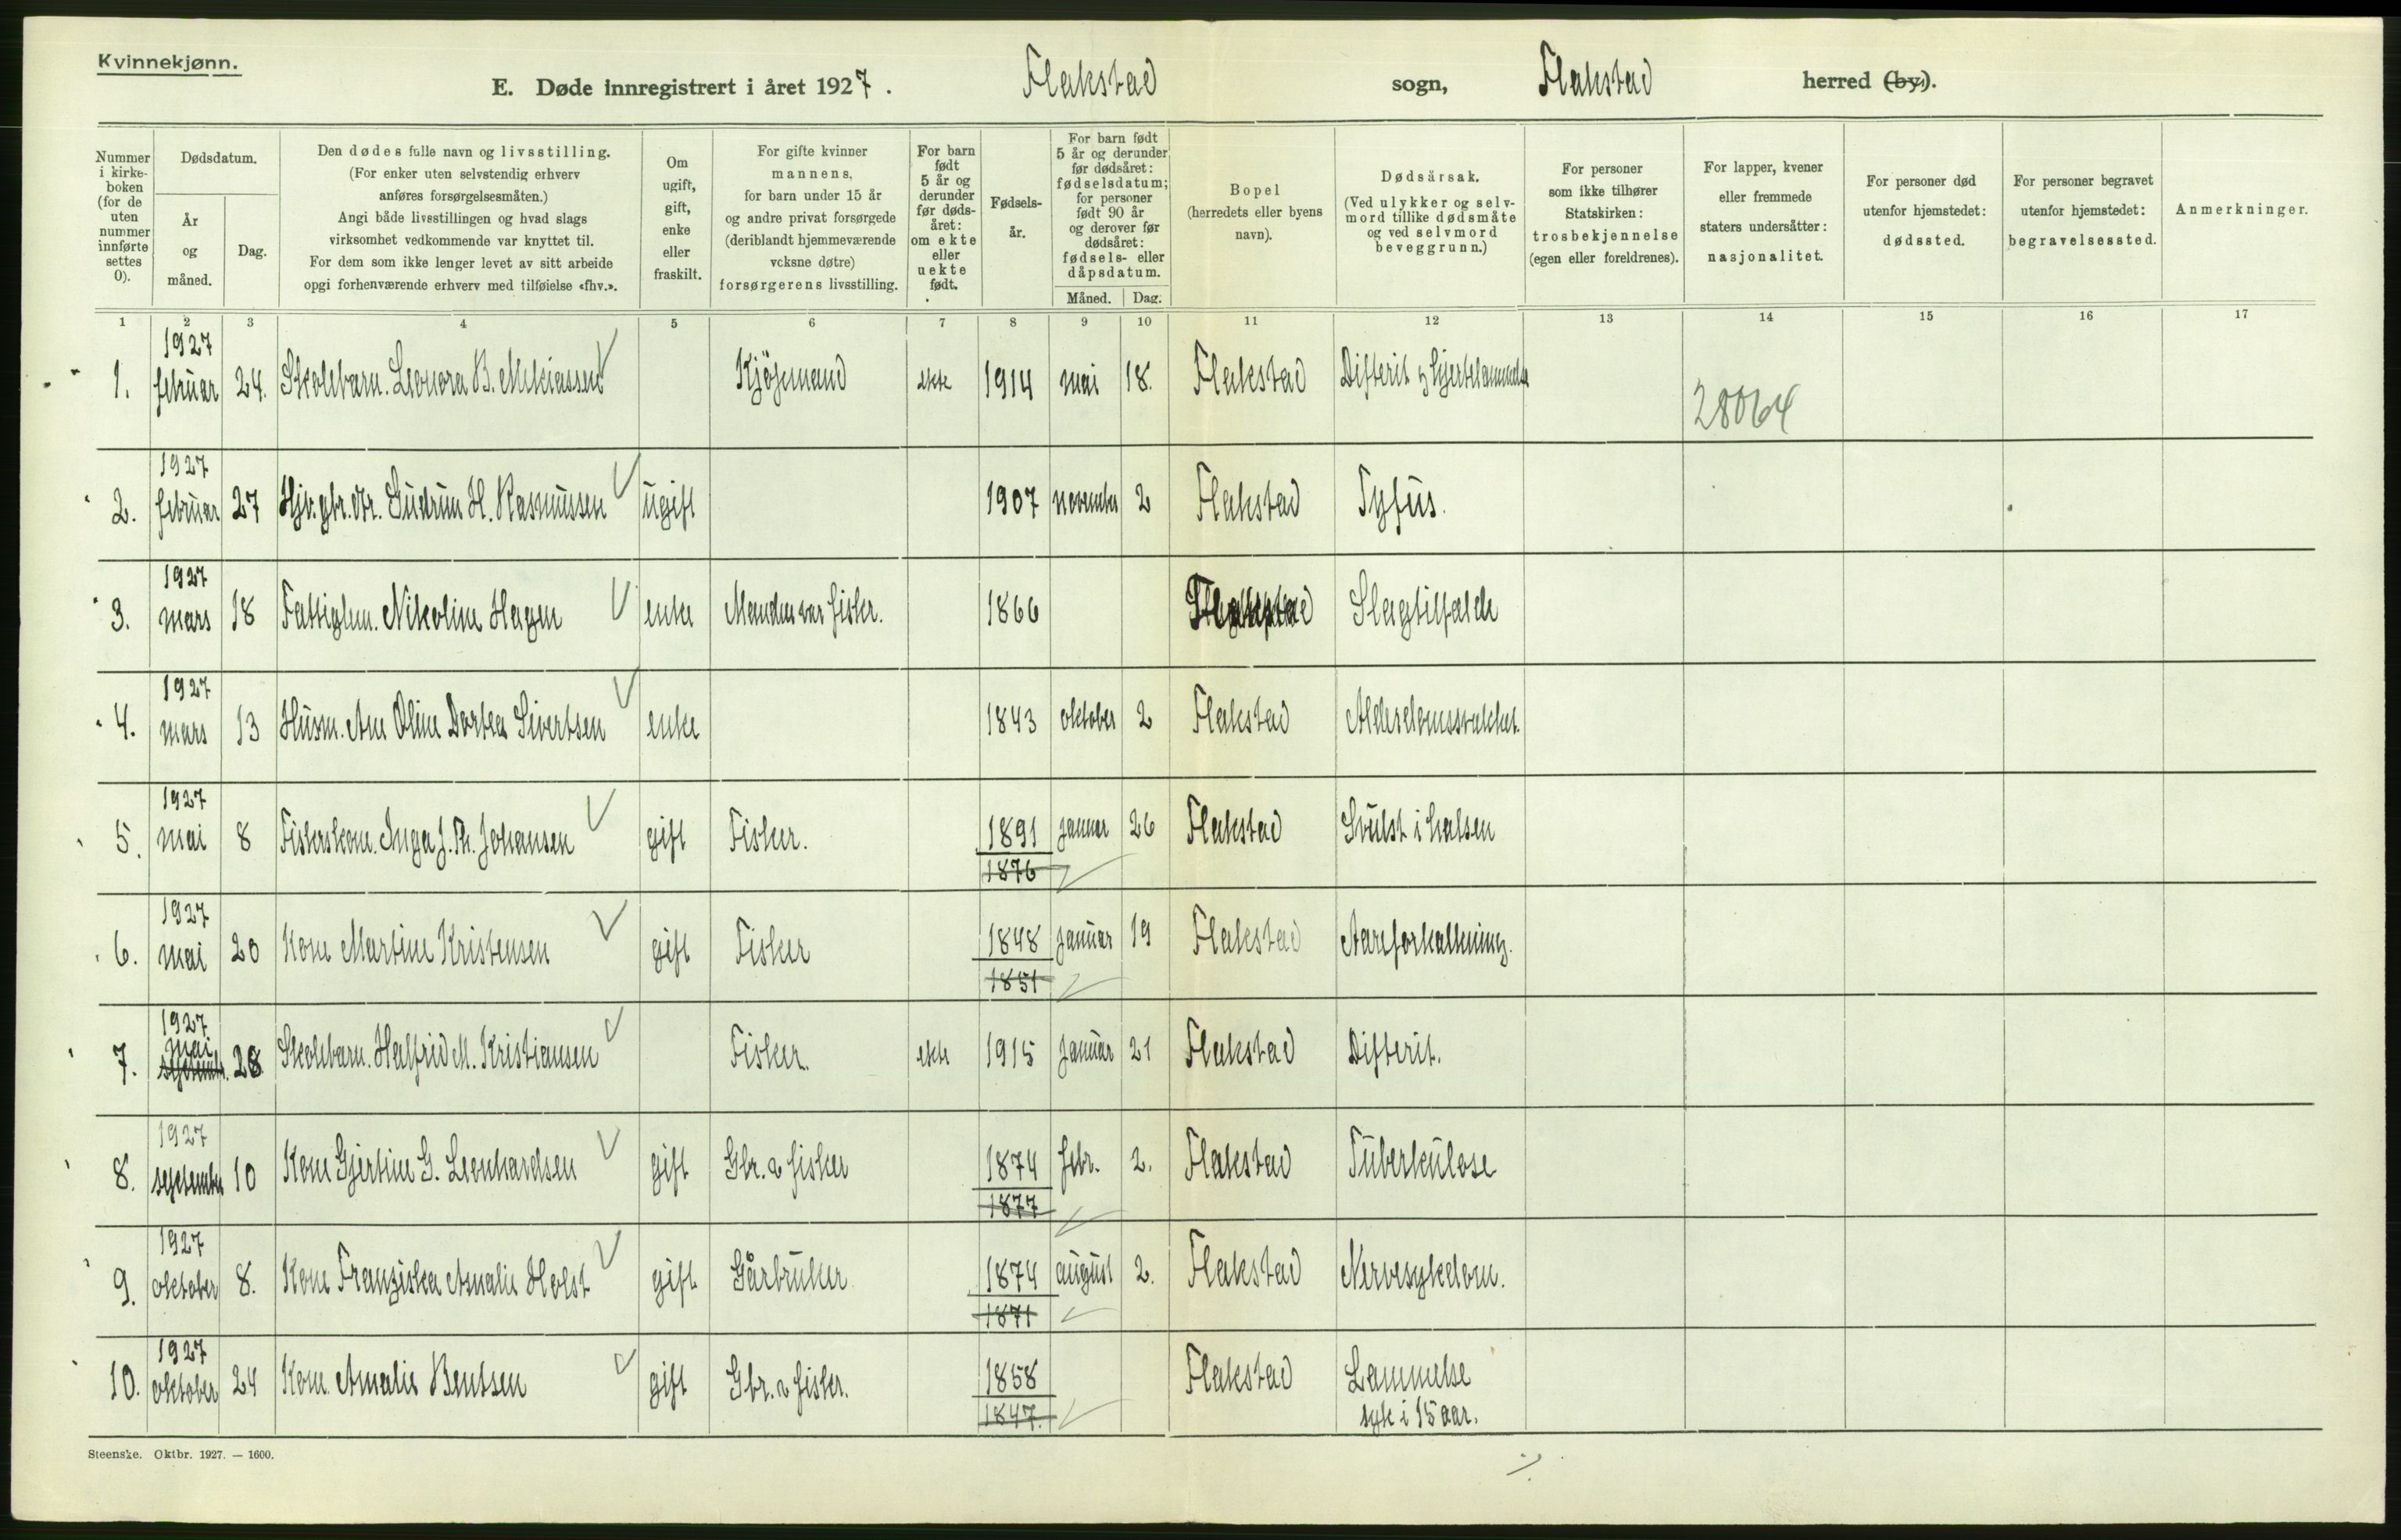 Kvinnekjønn.
E. Døde innregistrert i året 1927. Flakstad sogn, Flakstad herred (by).
Nummer i kirkeboken (for de uten nummer innførte settes 0).
Dødsdatum.
År og måned.
Dag.
Den dødes fulle navn og livsstilling.
(For enker uten selvstendig erhverv
anføres forsørgelsesmåten.)
Angi både livsstillingen og hvad slags
virksomhet vedkommende var knyttet til.
For dem som ikke lenger levet av sitt arbeide
opgi forhenværende erhverv med tilføielse «fhv.».
Om ugift, gift, enke eller fraskilt.
For gifte kvinner
mannens,
for barn under 15 år
og andre privat forsørgede
(deriblandt hjemmeværende
voksne døtre)
forsørgerens livsstilling.
For barn født 5 år og derunder før dødsåret: om ekte eller uekte født.
Fødselsår.
For barn født
5 år og derunder
før dødsåret:
fødselsdatum;
for personer
født 90 år
og derover før
dødsåret:
fødsels- eller
dåpsdatum.
Måned. Dag.
Bopel
(herredets eller byens
navn).
Dødsårsak.
(Ved ulykker og selv-
mord tillike dødsmåte
og ved selvmord
beveggrunn.)
For personer
som ikke tilhører
Statskirken:
trosbekjennelse
(egen eller foreldrenes).
For lapper, kvener
eller fremmede
staters undersåtter:
nasjonalitet.
For personer død
utenfor hjemstedet:
dødssted.
For personer begravet
utenfor hjemstedet:
begravelsessted.
Anmerkninger.
1 2 3 4 5 6 7 8 9 10 11 12 13 14 15 16 17
1. 1927 februar 24. Skolebarn. Leonora B. Mekiassen Kjøpmand ekte 1914 mai 18. Flakstad Difterit og Hjertelammelse 28064
2. 1927 februar 27 Hjv. gbr. dtr. Gudrun H. Rasmussen ugift 1907 november 2 Flakstad Tyfus.
3. 1927 mars 18 Fattiglem. Nikoline Hagen enke Manden var fisker. 1866 Flakstad Slagtilfælde
4. 1927 mars 13 Husm. Ane Oline Dortea Sivertsen enke 1843 oktober 2 Flakstad Alderdomssvakhet.
5. 1927 mai 8 Fiskerkone. Inga J. Th. Johansen gift Fisker. 1891 januar 26 Flakstad Svulst i halsen
1876
6. 1927 mai 20 Kone Martine Kristensen gift Fisker 1848 januar 19 Flakstad Aareforkalkning.
1851
7. 1927 mai september 28 Skolebarn. Halfrid M. Kristiansen Fisker. ekte 1915 januar 21 Flakstad Difterit.
8. 1927 september 10 Kone Gjertine G. Leonhardsen gift Gbr. & fisker 1874 febr. 2. Flakstad Tuberkulose
1877
9. 1927 oktober 8. Kone Franziska Amalie Holst gift Gårbruker 1874 august 2. Flakstad Nervesykdom.
1871
10. 1927 oktober 24 Kone Amalie Bentsen gift Gbr. & fisker. 1858 Flakstad Lammelse
1847. syk i 15 aar.
Steenske. Oktbr. 1927. — 1600.